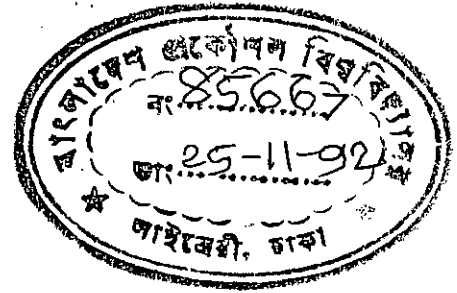 বাংলাদেশ প্রকৌশল বিশ্ববিদ্যালয়
নং 85667
তাং 25-11-92
লাইব্রেরী, ঢাকা